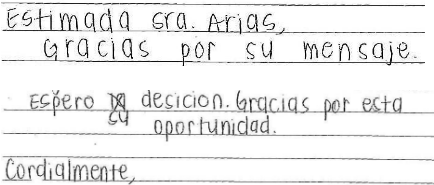 Estimada sra. Arias,
Gracias por su mensaje.
Espero su desicion. Gracias por esta
oportunidad.
Cordialmente,